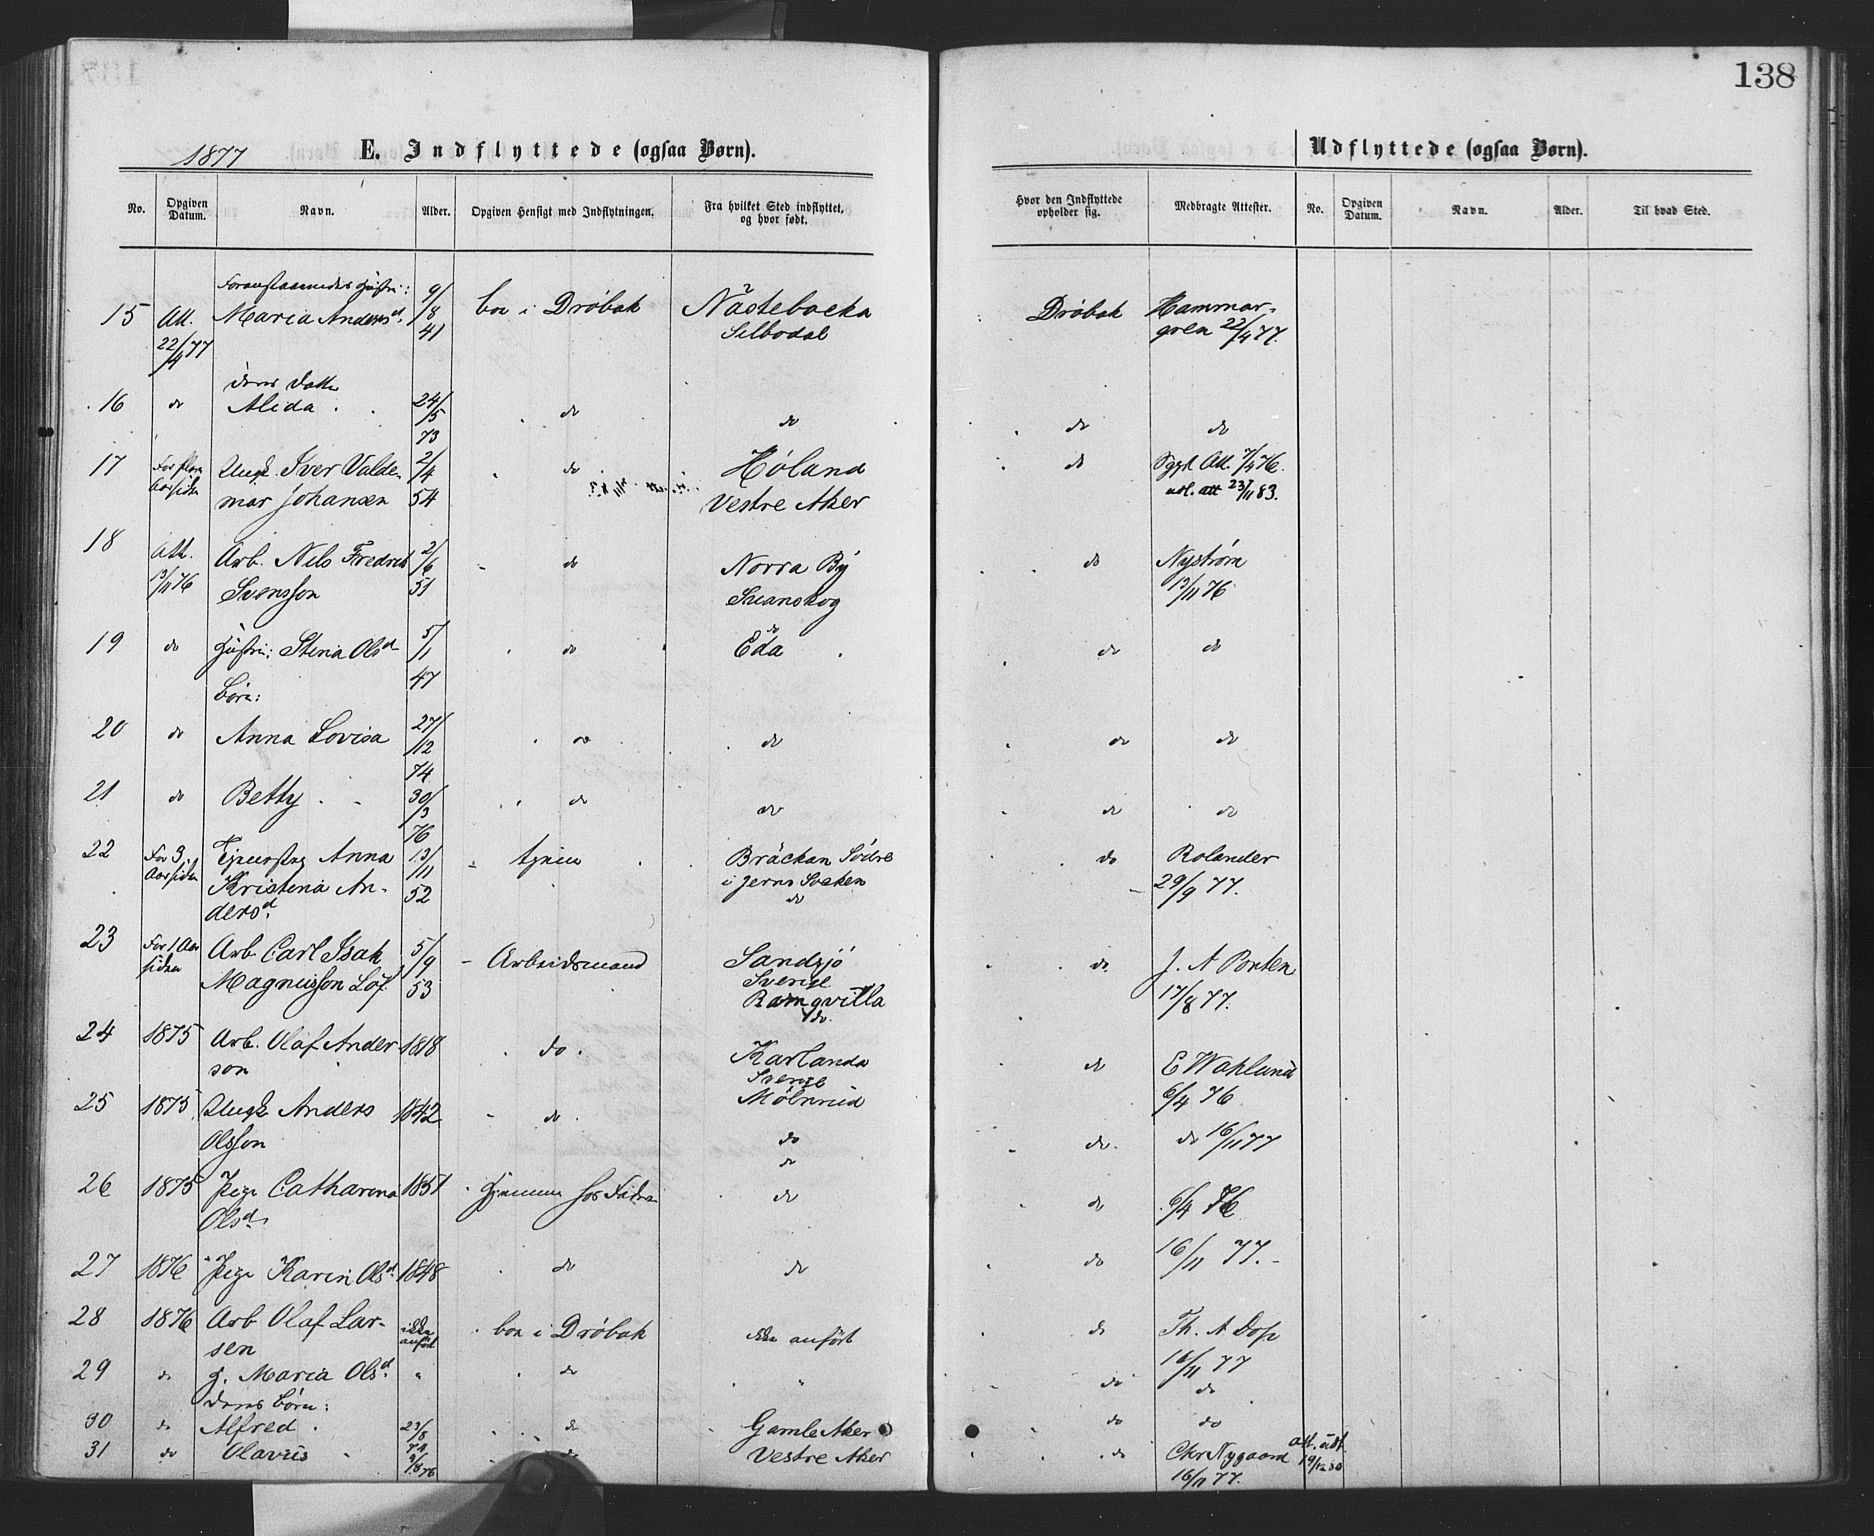 138
1877 E. Indflyttede (ogsaa Børn). Udflyttede (ogsaa Børn).
No. Opgiven Datum. Navn. Alder. Opgiven Hensigt med Indflytningen. Fra hvilket Sted indflyttet, og hvor født. Hvor den Indflyttede opholder sig. Medbragte Attester. No. Opgiven Datum. Navn. Alder. Til hvad Sted.
Foranstaaendes Hustru: 9/
15 Att. Maria Andersd. /8 boe i Drøbak Nästebacka Drøbak Hammar-
22/4 77 41 Selbodal gren 22/4 77.
deres Datter
16 do Alida 24/5 73 do do do do
17 For flere Ungk. Iver Valde- 2/4 do Høland do Sgpr Att. 7/4 76.
Aar siden mar Johansen 54 Vestre Aker udl. att 23/11 83.
18 Att. Arb. Nils Fredrik 2/6 do Norra By do Nystrøm
13/11 76 Svensson 51 Svanskog 13/11 76
do
19 do Hustru: Stena Olsd 5/1 47 do Eda do do
Børn:
20 do Anna Lovisa 27/12 74 do do do do
21 do Betty 30/3 76 do do do do
22 For 3 Tjenestpg Anna 13/11 tjene Bräckan Södre do Rolander
Aar siden Kristena An- 52 i Jerns Socken 29/9 77.
dersd. do
23 For 1 Aar Arb Carl Isak 5/9 Arbeidsmand Sandsjö do J. A Ponten
siden Magnusson Löf. 53 Sverige 17/8 77.
Ramqvilla
do.
24 1875 Arb. Olaf Ander- 1818 do. Karlanda do E Wahlund
son Sverige 6/4 76
25 1875 Ungk Anders 1842 do Mölnrud do. do 16/11 77
Olsson do
do
26 1875 Pige Catharena 1851 Hjemme hos Fadren do do 6/4 76
Olsd
27 1876 Pige Karin Olsd 1848 do do do 16/11 77.
28 1876 Arb Olaf Lar- ikke boe i Drøbak ikke anført do Th. A Dop
sen anført 16/11 77
29 do H. Maria Olsd. " do " do do
deres Børn:
30 do Alfred 23/8 74 do Gamle Aker do do
31 do Olavus 9/8 76 do Vestre Aker do Chr Nygaard att. udt.
16/11 77. 19/12 80